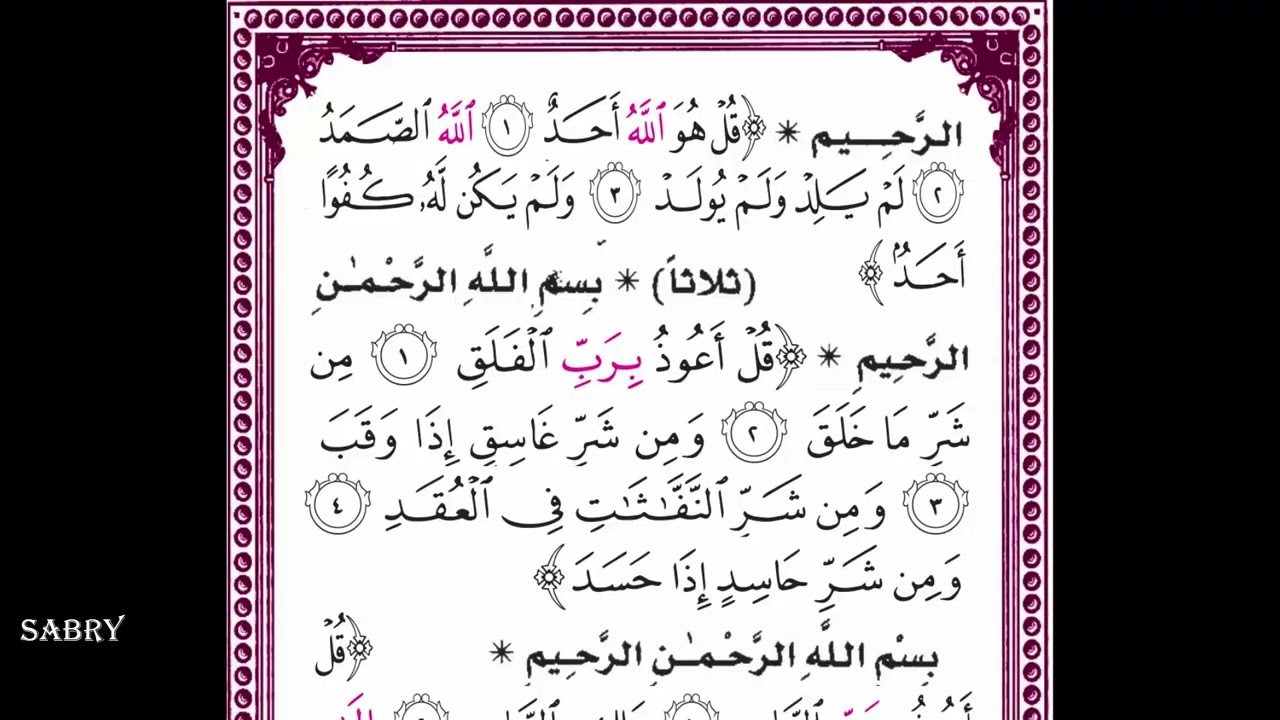 الرَّحِـيم * ﴿قُلْ هُوَ ٱللَّهُ أَحَدٌ ١ ٱللَّهُ ٱلصَّمَدُ
٢ لَمْ يَلِدْ وَلَمْ يُولَدْ ٣ وَلَمْ يَكُن لَّهُۥ كُفُوًا
أَحَدٌۢ﴾
(ثلاثاً) * بِسمِ اللَّهِ الرَّحْمٰنِ
الرَّحِيمِ * ﴿قُلْ أَعُوذُ بِرَبِّ ٱلْفَلَقِ ١ مِن
شَرِّ مَا خَلَقَ ٢ وَمِن شَرِّ غَاسِقٍ إِذَا وَقَبَ
٣ وَمِن شَرِّ ٱلنَّفَّٰثَٰتِ فِى ٱلْعُقَدِ ٤
وَمِن شَرِّ حَاسِدٍ إِذَا حَسَدَ﴾
بِسْمِ اللَّهِ الرَّحْمٰنِ الرَّحِيمِ * ﴿قُلْ
SABRY